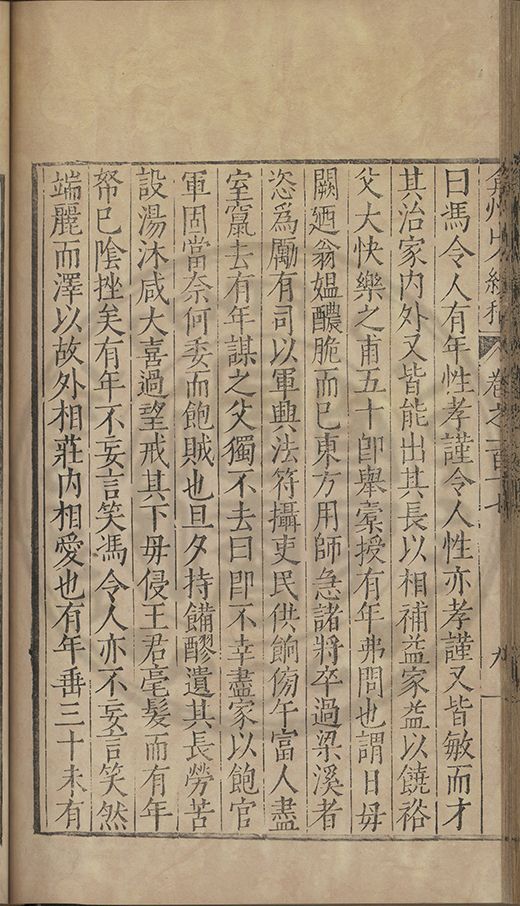 弇州山人續稿 卷之一百十七 九
曰馮令人有年性孝謹令人性亦孝謹又皆敏而才
其治家内外又皆能出其長以相補益家益以饒裕
父大快樂之甫五十卽舉橐授有年弗問也謂日毋
闕廼翁媼醲脆而已東方用師急諸將卒過梁溪者
恣爲厲有司以軍興法符攝吏民供餉傍午富人盡
室竄去有年謀之父獨不去曰卽不幸盡家以飽官
軍固當奈何委而飽賊也旦夕持餔醪遺其長勞苦
設湯沐咸大喜過望戒其下毋侵王君毫髮而有年
帑已陰挫矣有年不妄言笑馮令人亦不妄言笑然
端麗而澤以故外相莊内相愛也有年垂三十未有